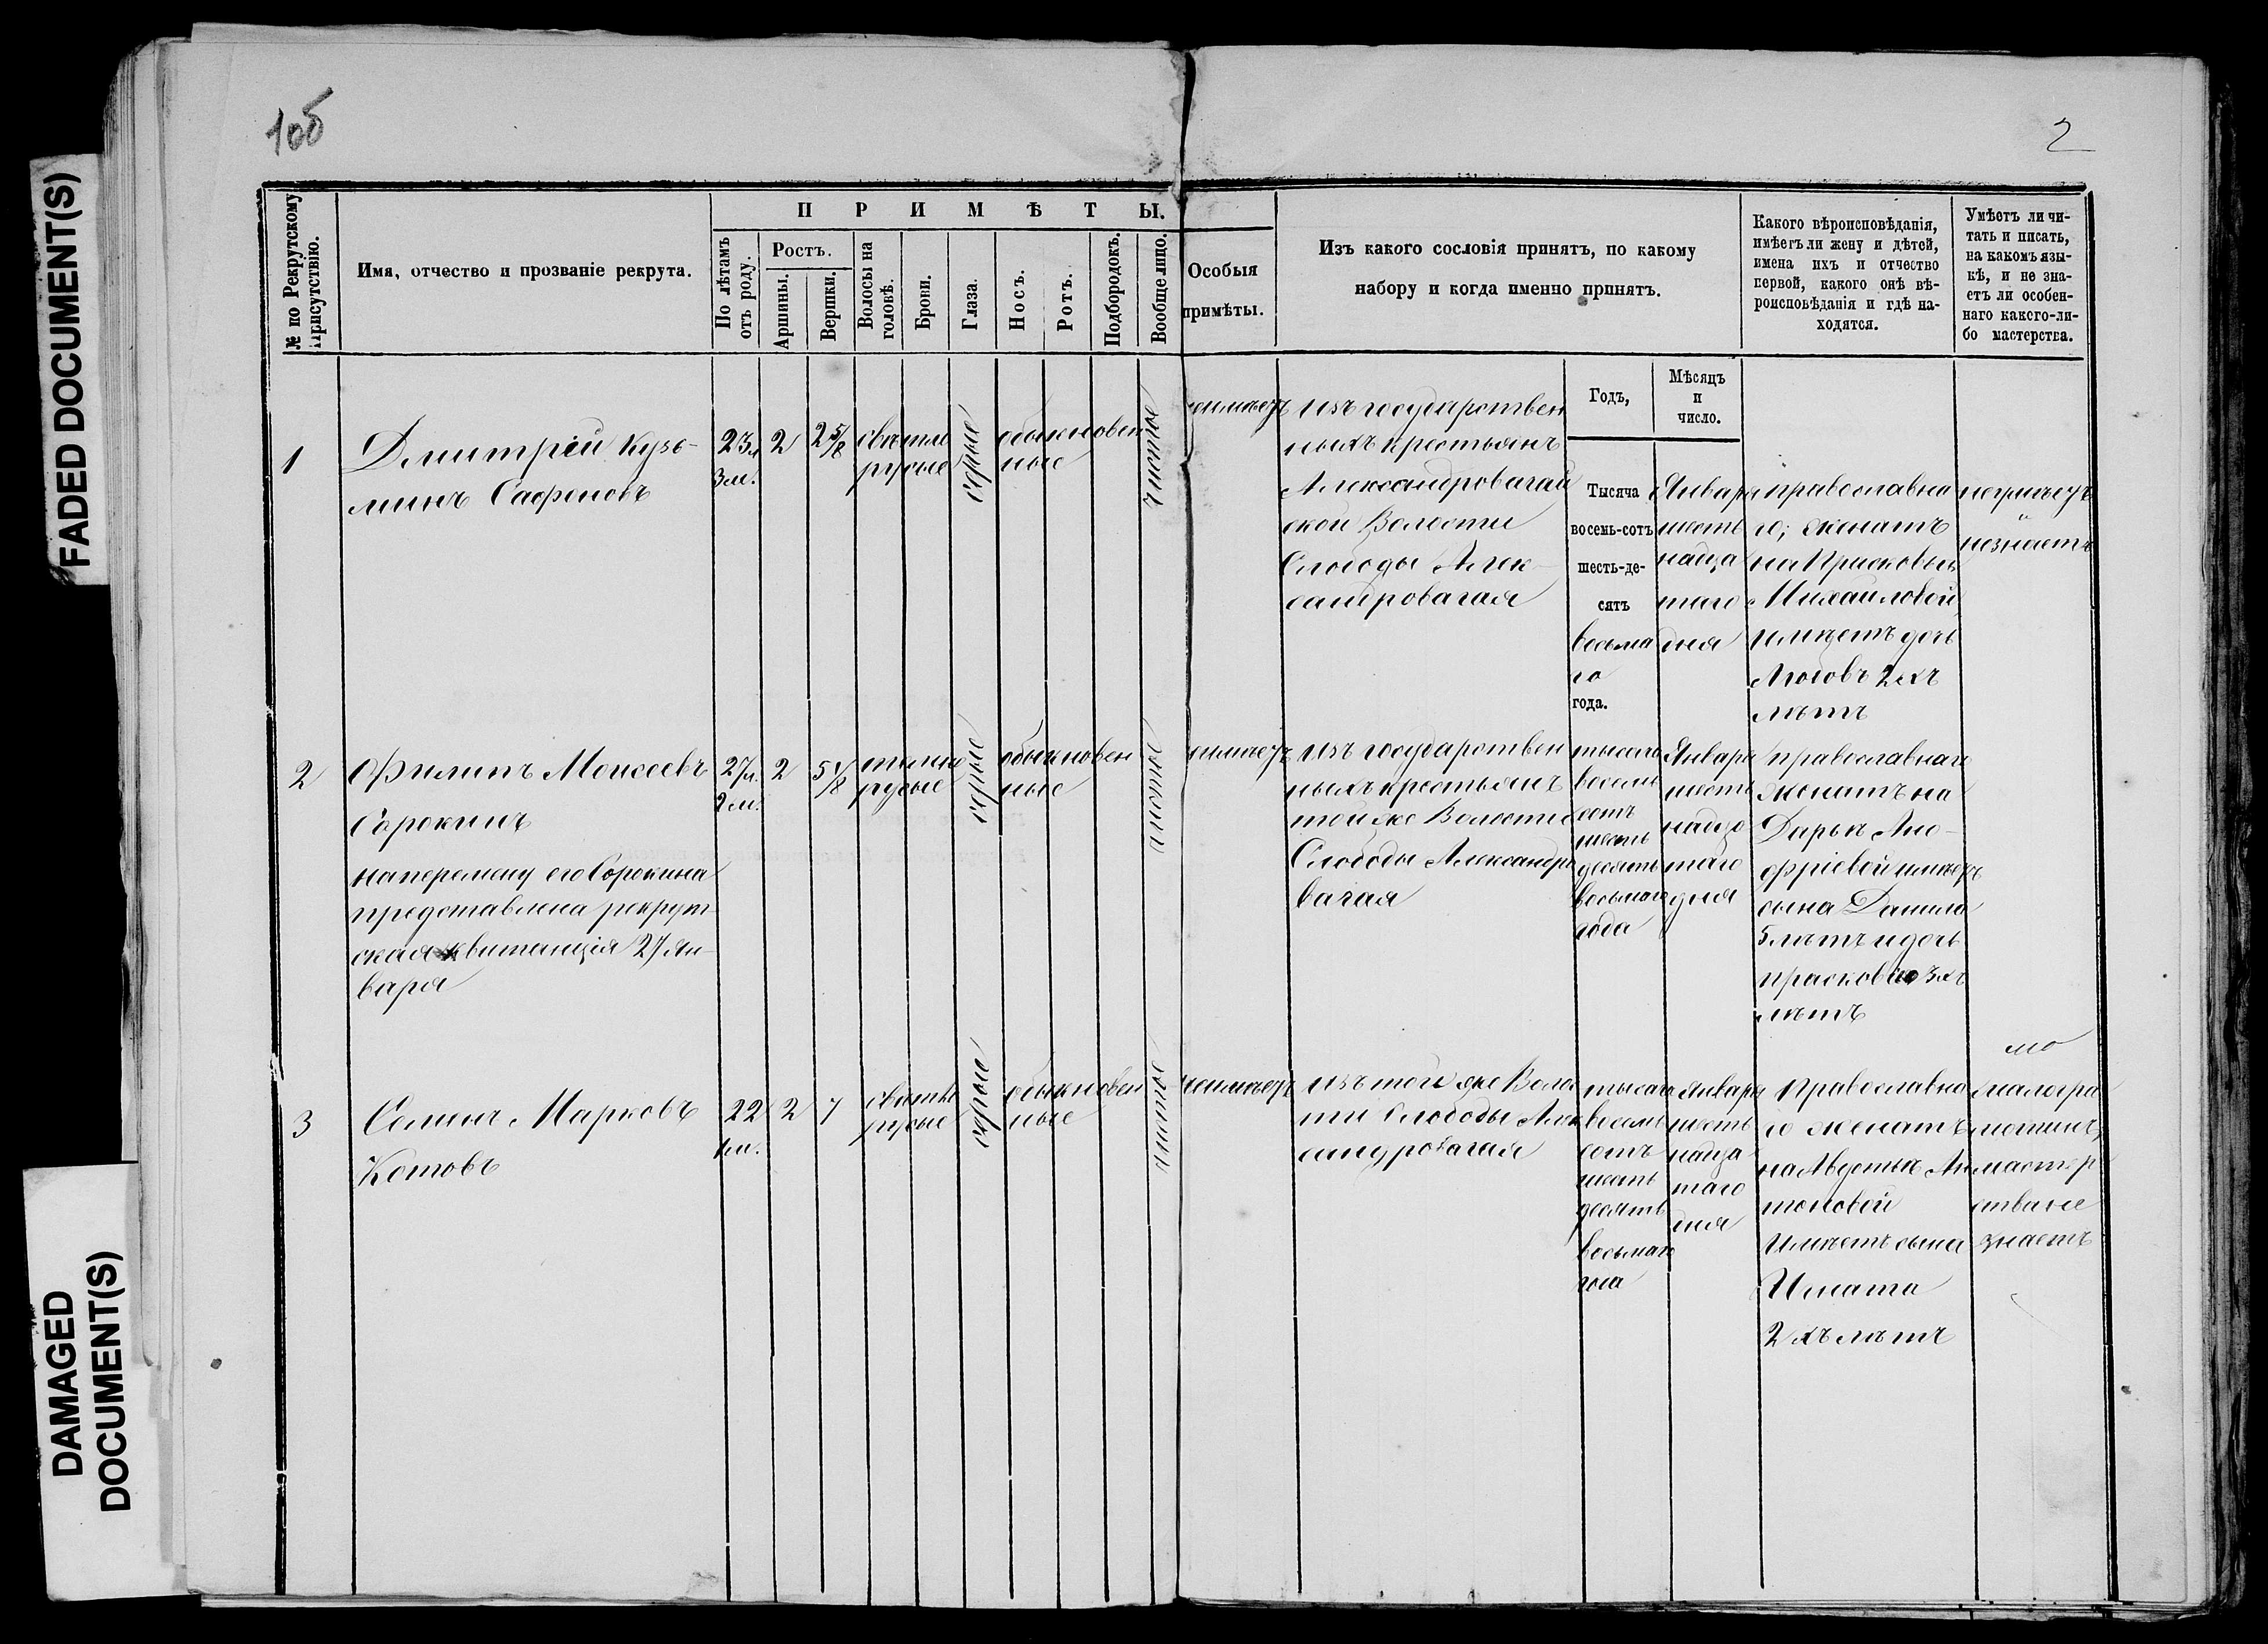 FADED DOCUMENT(S)
DAMAGED
DOCUMENT(S)
1об
2
№ по Рекрутскому
Присутствію.
Имя, отчество и прозваніе рекрута.
ПРИМѢТЫ.
По лѣтамъ
отъ роду.
Ростъ.
Аршины.
Вершки.
Волосы на
головѣ.
Брови.
Глаза.
Носъ.
Ротъ.
Подбородокъ.
Вообще лицо.
Особыя
примѣты.
Изъ какого сословія принятъ, по какому
набору и когда именно принятъ.
Годъ,
Мѣсяцъ
и
число.
Какого вѣроисповѣданія,
имѣетъ ли жену и дѣтей,
имена ихъ и отчество
первой, какого онѣ вѣ-
роисповѣданія и гдѣ на-
ходятся.
Умѣетъ ли чи-
тать и писать,
на какомъ язы-
кѣ, и не зна-
етъ ли особен-
наго какого-ли-
бо мастерства.
1
Дмитрій Кузь-
минъ Сафоновъ
23 л
3 м.
2
2 5/8
свѣтло
русые
сѣрые
обыкновен
ные
чистое
неимѣетъ
изъ государствен
ныхъ крестьянъ
Александровагай
ской Волости
Слободы Алек-
сандровагая
Тысяча
восемь-сотъ
шесть-де-
сятъ
восьма
го
года.
Января
шесть
надца
таго
дня
православна
го; женатъ
на Прасковьѣ
Михайловой
имѣетъ дочь
Любовь 2хъ
лѣтъ
неумѣетъ
и
незнаетъ
2
Филипъ Моисеевъ
Сорокинъ
наперемену его Сорокина
представлена рекрут-
ская квитанція 27 Ян-
варя
27 л.
2 м.
2
5 1/8
темно
русые
сѣрые
обыкновен
ные
чистое
неимѣетъ
изъ государствен
ныхъ крестьянъ
той же Волости
Слободы Александро
вагая
тысяча
восемь
сотъ
шесть
десятъ
восьмаго
года
Января
шесть
надца
таго
дня
православнаго
женатъ на
Дарьѣ Ано-
фріевой имѣетъ
сына Данила
5 лѣтъ и дочь
прасковью 3хъ
лѣтъ
3
Семенъ Марковъ
Котовъ
22
1 м.
2
7
свѣтло
русые
сѣрые
обыкновен
ные
чистое
неимѣетъ
изъ той же Волос
ти Слободы Алек
сандровагая
тысяча
восемь
сотъ
шесть
десятъ
восьмаго
года
Января
шесть
надца
таго
дня
Православна
го женатъ
на Авдотьѣ Ан
тоновой
Имѣетъ сына
Игната
2хъ лѣтъ
малогра
мотинъ,
мастер
ства не
знаетъ